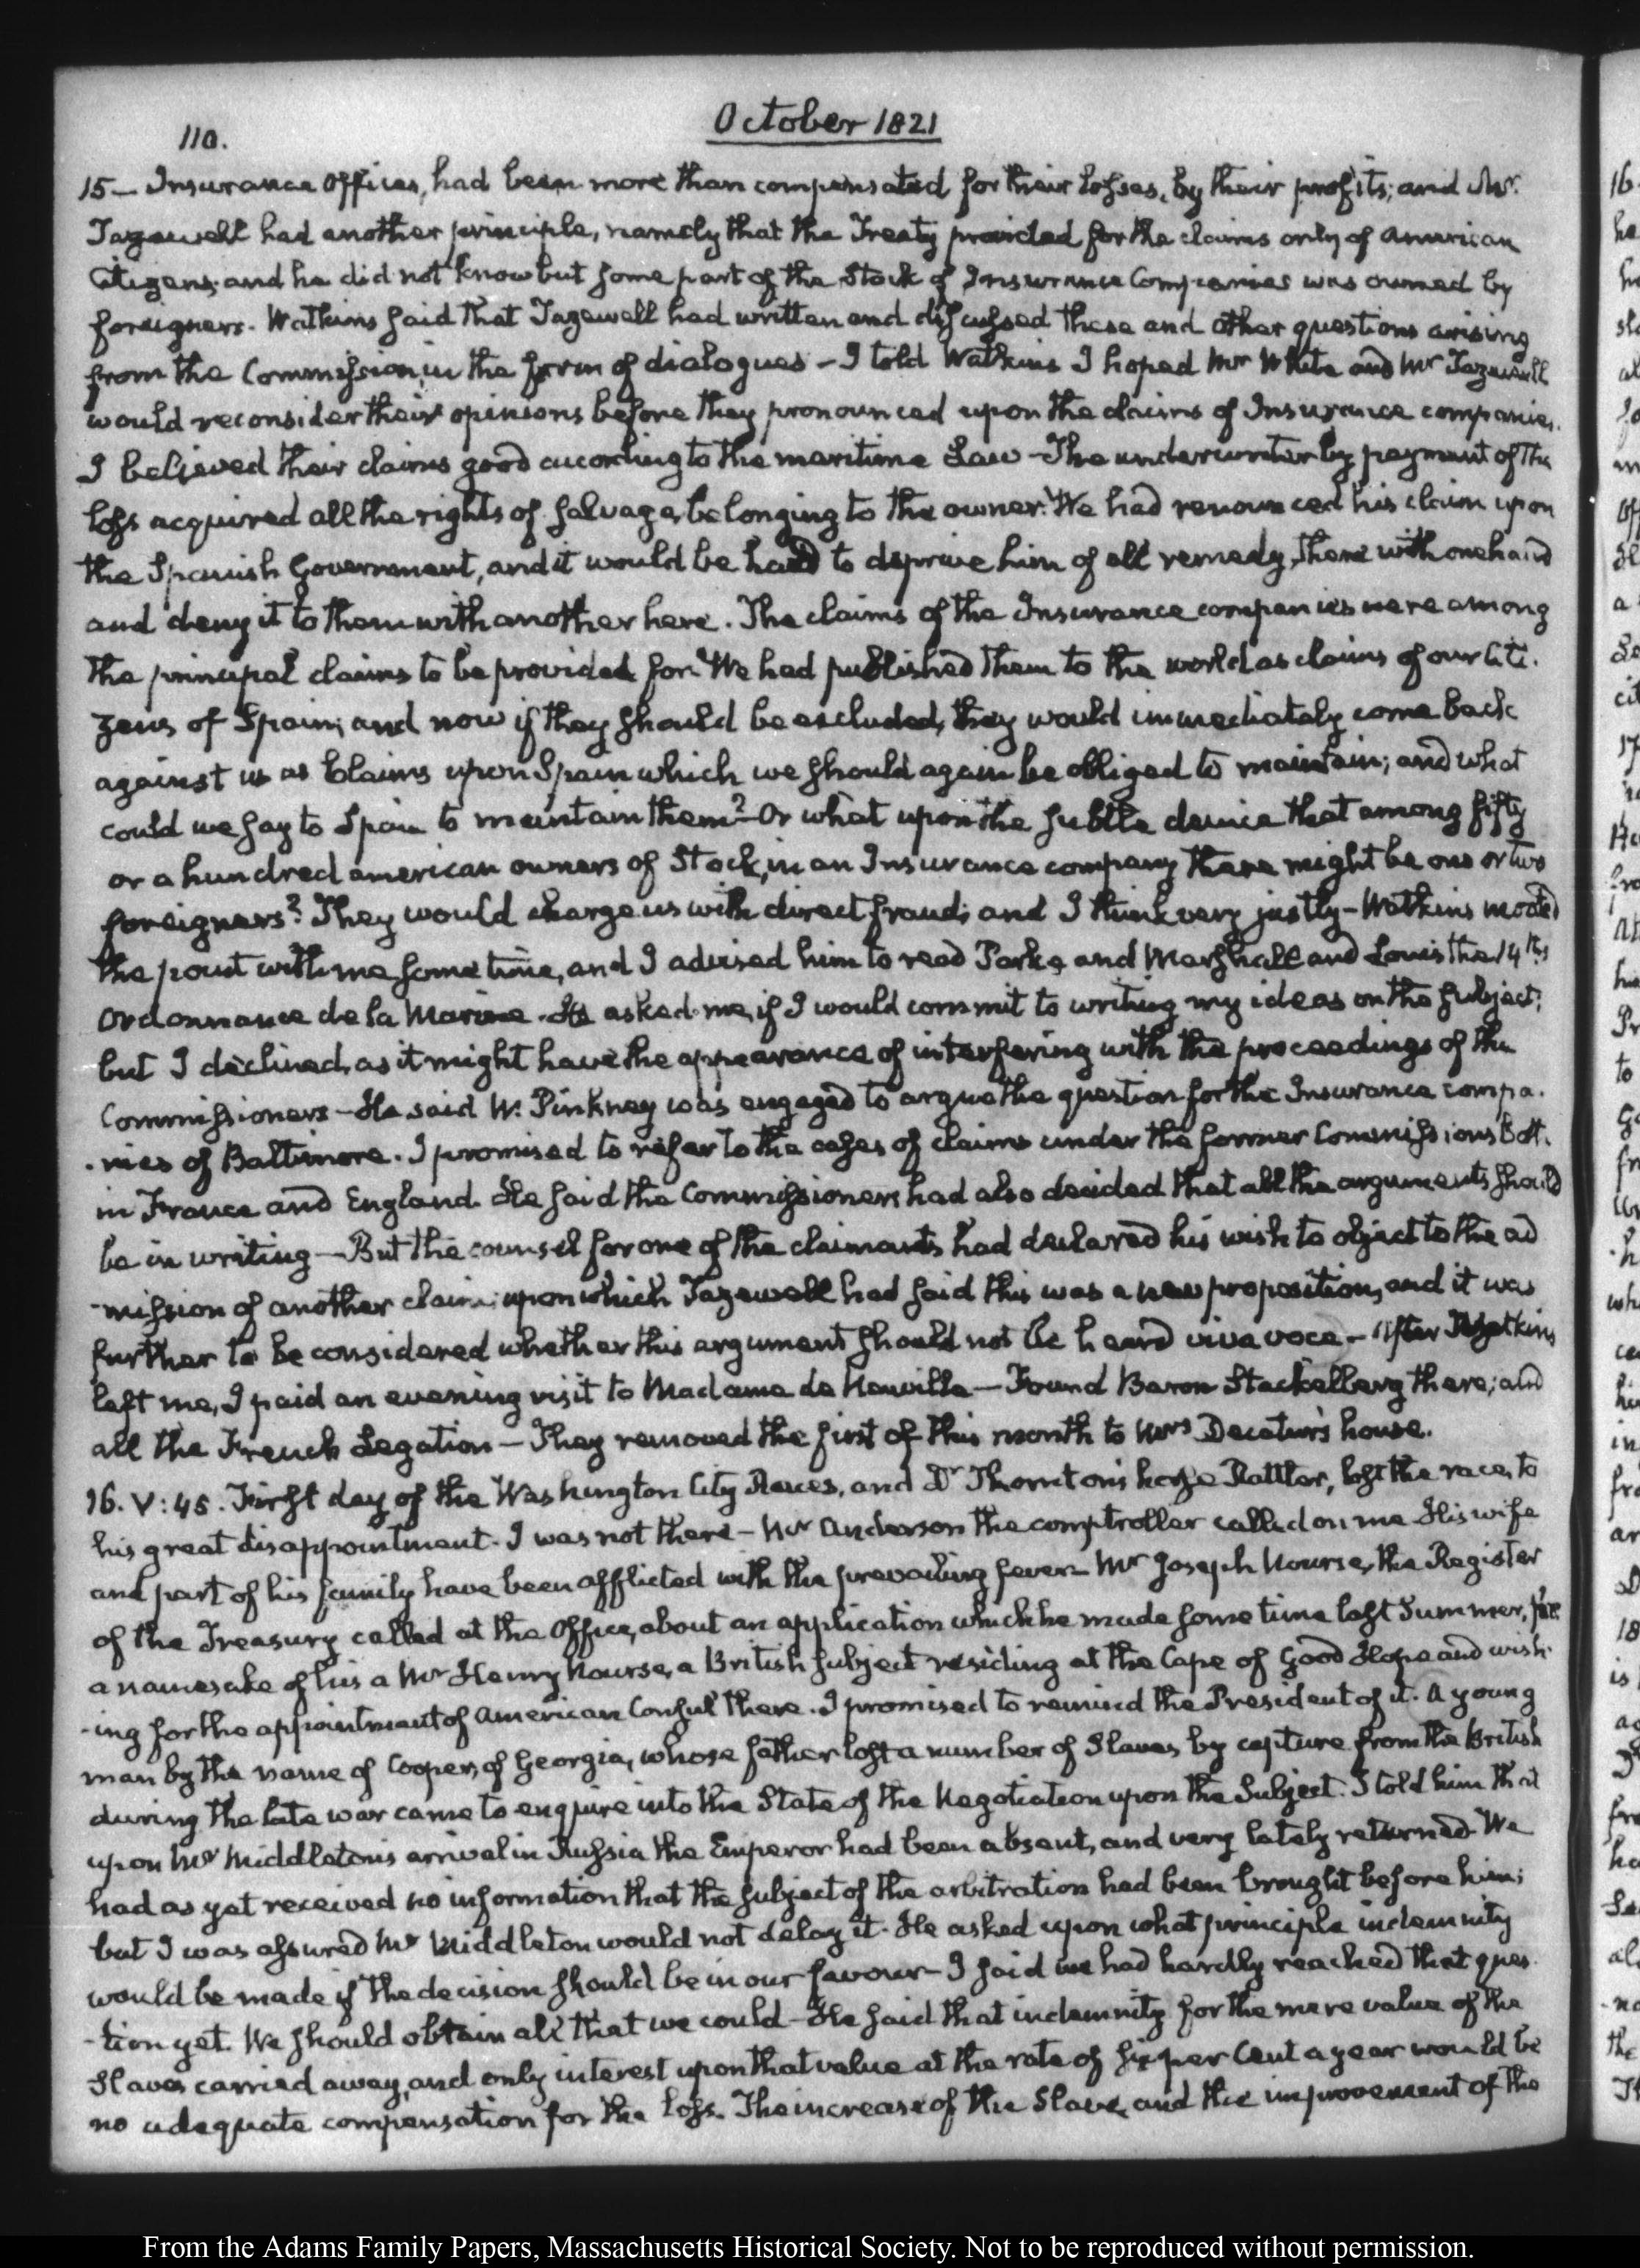 110.
October 1821
15— Insurance Offices, had been more than compensated for their losses, by their profits; and Mr.
Tazewell had another principle, namely that the Treaty provided for the claims only of American
Citizens; and he did not know but some part of the Stock of Insurance Companies was owned by
foreigners. Watkins said that Tazewell had written and discussed these and other questions arising
from the Commission, in the form of dialogues — I told Watkins I hoped Mr White and Mr Tazewell
would reconsider their opinions before they pronounced upon the claims of Insurance companies.
I believed their claims good according to the maritime Law — The underwriter by payment of the
loss acquired all the rights of salvage, belonging to the owner. We had renounced his claim upon
the Spanish Government, and it would be hard to deprive him of all remedy, there with one hand
and deny it to them with another here. The claims of the Insurance companies were among
the principal claims to be provided for. We had published them to the world as claims of our Citi-
zens of Spain; and now if they should be excluded, they would immediately come back
against us as Claims upon Spain which we should again be obliged to maintain; and what
could we say to Spain to maintain them? Or what upon the subtle device that among fifty
or a hundred american owners of Stock, in an Insurance company there might be one or two
foreigners? They would charge us with direct fraud; and I think very justly — Watkins mooted
the point with me some time, and I advised him to read Parke, and Marshall and Louis the 14ths
Ordonnance de la Marine. He asked me, if I would commit to writing my ideas on the subject;
but I declined, as it might have the appearance of interfering with the proceedings of the
Commissioners — He said W. Pinkney was engaged to argue the question for the Insurance compa-
-nies of Baltimore. I promised to refer to the cases of claims under the former Commissions both
in France and England. He said the Commissioners had also decided that all the arguments should
be in writing — But the counsel for one of the claimants had declared his wish to object to the ad
-mission of another claim; upon which Tazewell had said this was a new proposition, and it was
further to be considered whether this argument should not be heard viva voce — After Watkins
left me, I paid an evening visit to Madame de Neuville — Found Baron Stackelberg there; and
all the French Legation — They removed the first of this month to Mrs Decatur's house.
16. V:45. First day of the Washington City Races, and Dr Thornton's horse Rattler, lost the race, to
his great disappointment. I was not there — Mr Anderson the comptroller called on me. His wife
and part of his family have been afflicted with the prevailing fever — Mr Joseph Nourse, the Register
of the Treasury called at the Office, about an application which he made some time last Summer, for
a namesake of his a Mr Henry Nourse, a British subject residing at the Cape of Good Hope and wish-
-ing for the appointment of American Consul there. I promised to remind the President of it. A young
man by the name of Cooper, of Georgia, whose father lost a number of Slaves by capture from the British
during the late war came to enquire into the State of the Negotiation upon the Subject. I told him that
upon Mr Middleton's arrival in Russia the Emperor had been absent, and very lately returned. We
had as yet received no information that the subject of the arbitration had been brought before him;
but I was assured Mr Middleton would not delay it. He asked upon what principle indemnity
would be made if the decision should be in our favour — I said we had hardly reached that ques-
-tion yet. We should obtain all that we could — He said that indemnity for the mere value of the
Slaves carried away, and only interest upon that value at the rate of six per Cent a year would be
no adequate compensation for the loss. The increase of the Slaves, and the improvement of the
From the Adams Family Papers, Massachusetts Historical Society. Not to be reproduced without permission.